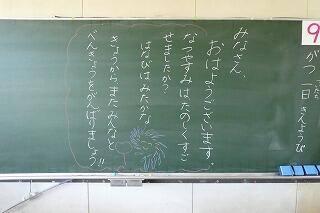 9
がつ
一日
きんようび
みなさん、
おはようございます。
なつやすみはたのしくすご
せましたか?
はなびはみたかな
きょうからまたみなと
べんきょうをがんばりましょう!!